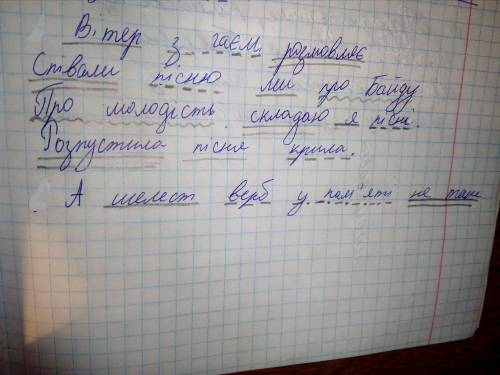 Вітер з гаєм розмовляє
Ствали пісню ми про Байду
Про молодість складаю я пісні.
Розпустила пісня крила.
А шелест верб у пам'яті не тане.